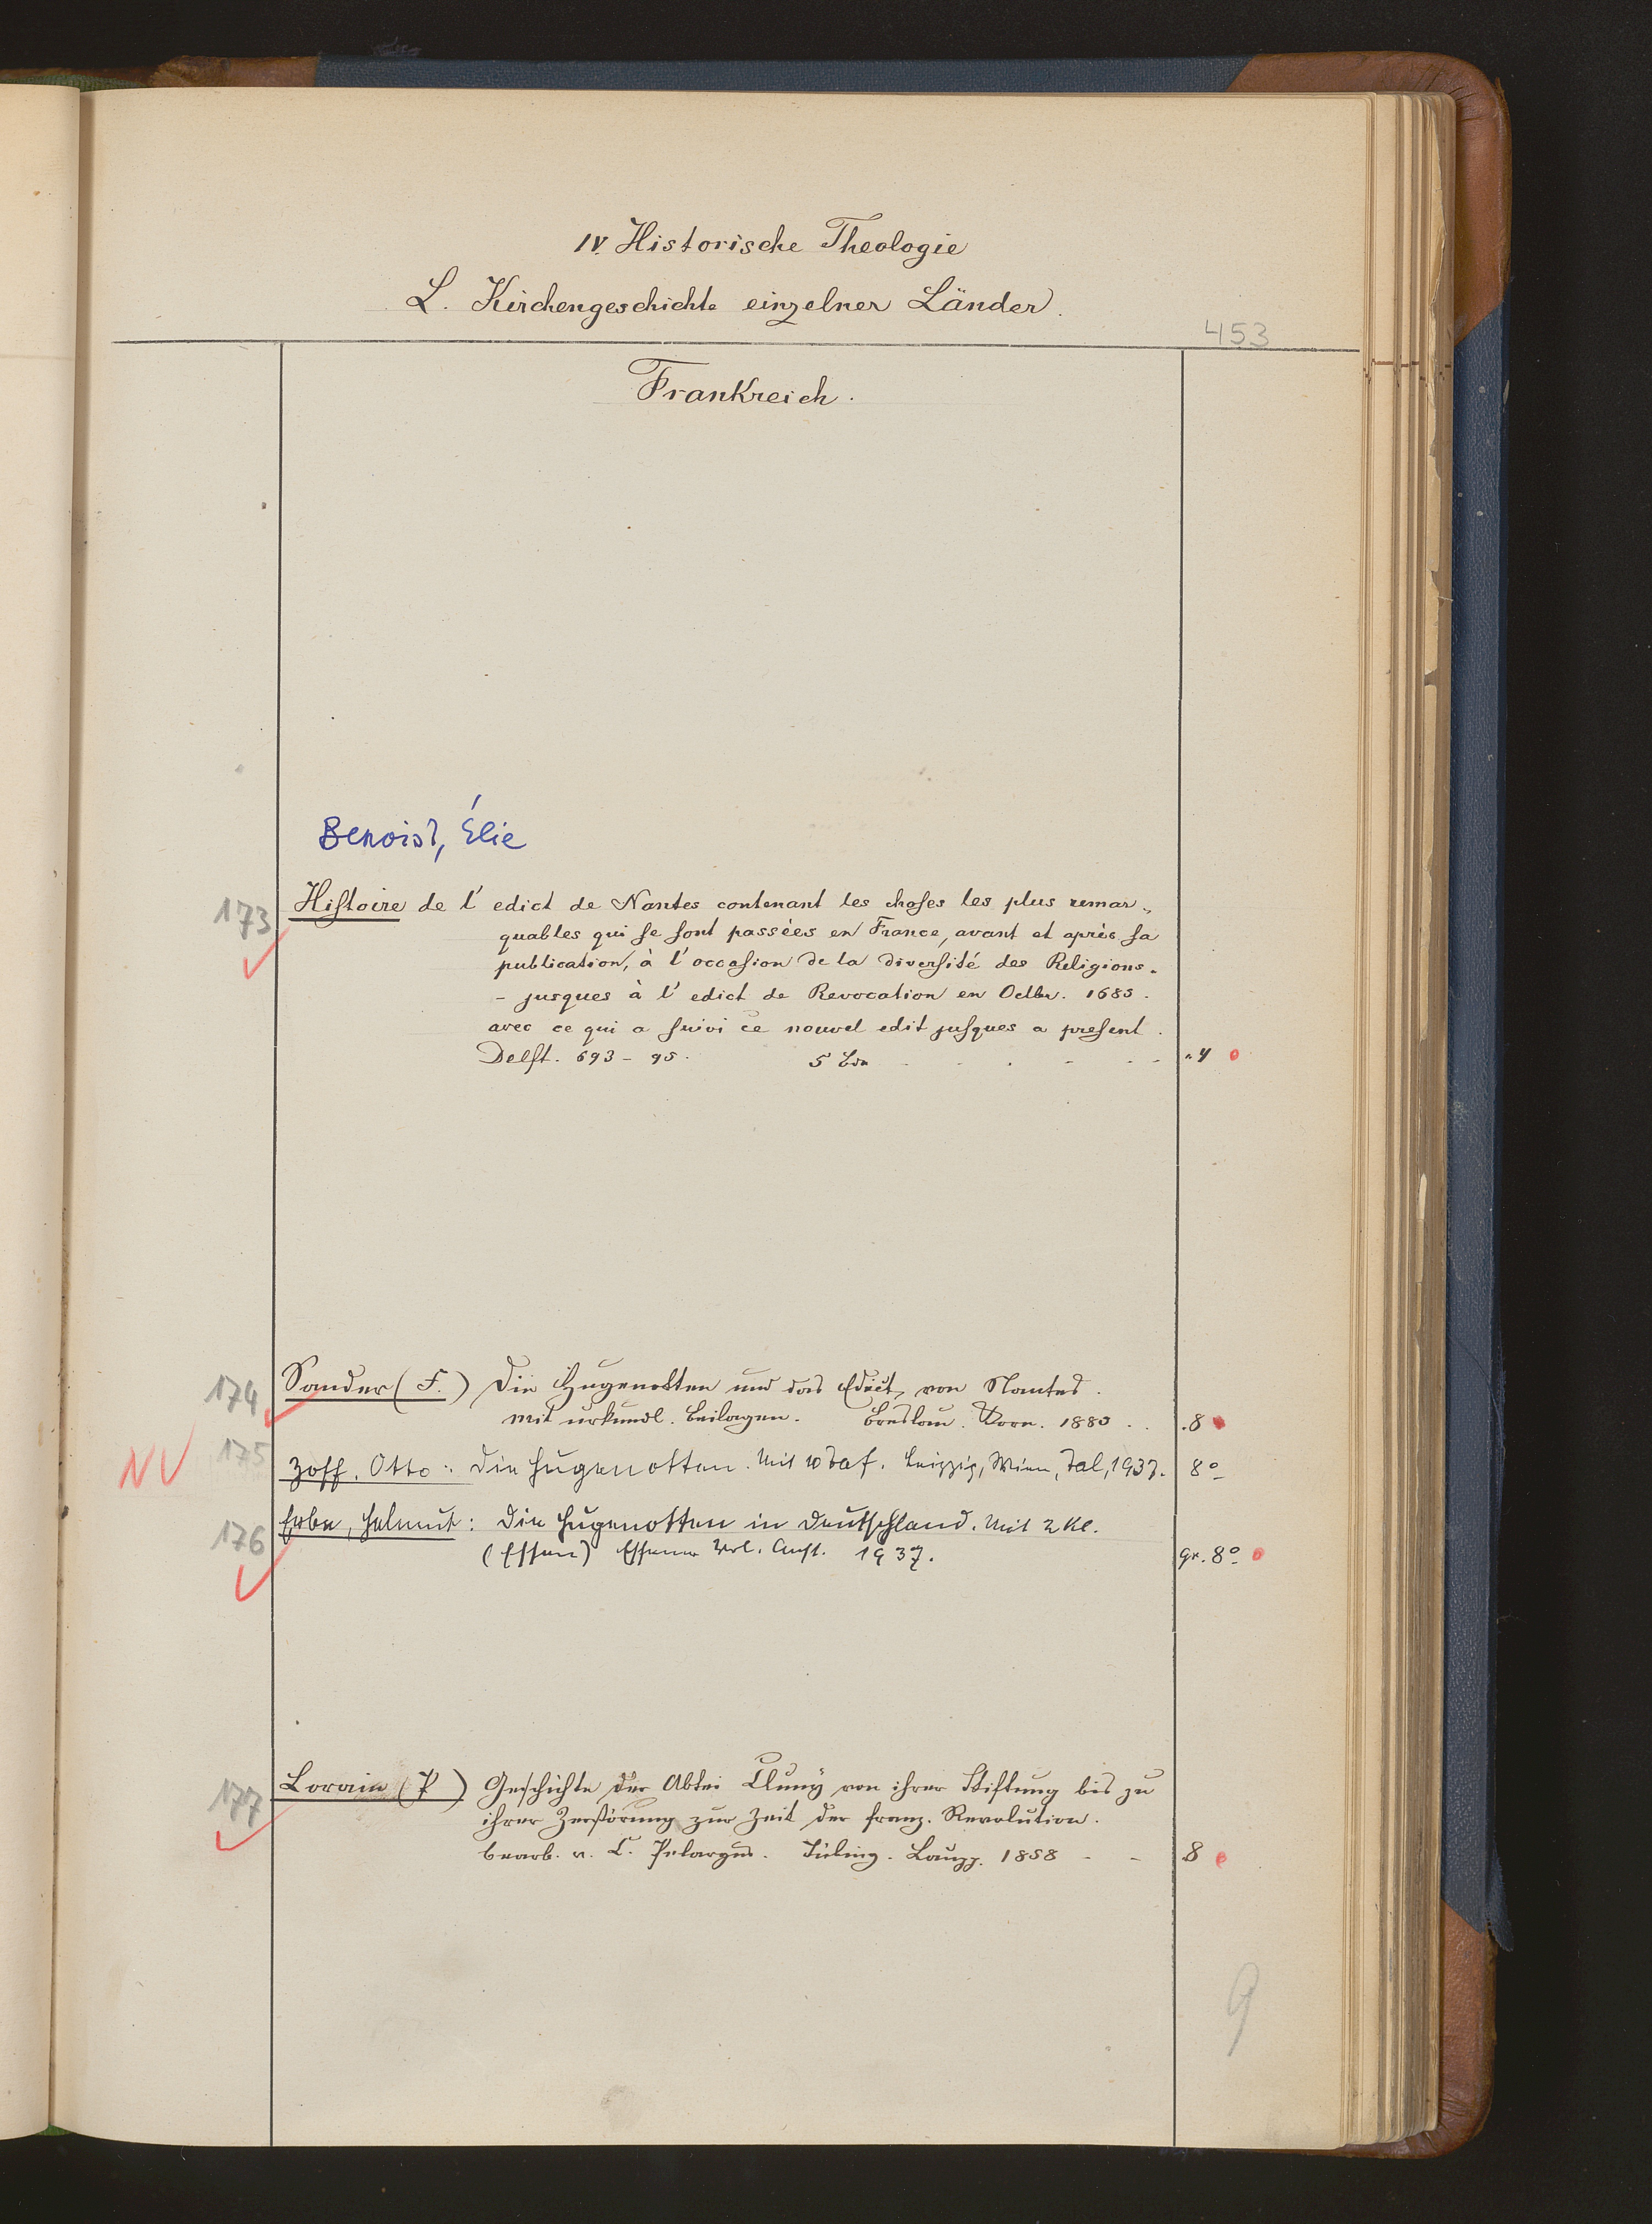 IV. Historische Theologie
L. Kirchengeschichte einzelner Länder.
453
Frankreich.
Benoist, Élie
173 Histoire de l' edict de Nantes contenant les choses les plus remar-
quables qui se sont passées en France, avant et après sa
publication, à l' occasion de la diversité des Religions.
- jusques à l' edict de Revocation en Octbr. 1685.
avec ce qui a suivi ce nouvel edit jusques a present.
Delft. 693-95. 5 Bde 4
174 Sander (F.) Die Hugenotten und das Edict von Nantes.
Mit urkundl. Beilagen. Breslau. Korn. 1885 8
NV 175 Zoff, Otto: Die Hugenotten. Mit 10 Taf. Leipzig, Wien, Tal, 1937. 8°
176 Erbe, Helmut: Die Hugenotten in Deutschland. Mit 2 Kt.
(Essen) Essener Verl. Anst. 1937. gr. 8°
177 Lorain (P) Geschichte der Abtei Cluny von ihrer Stiftung bis zu
ihrer Zerstörung zur Zeit der franz. Revolution.
bearb. v. C. Pelargus. Tübing. Laupp. 1858 8
9